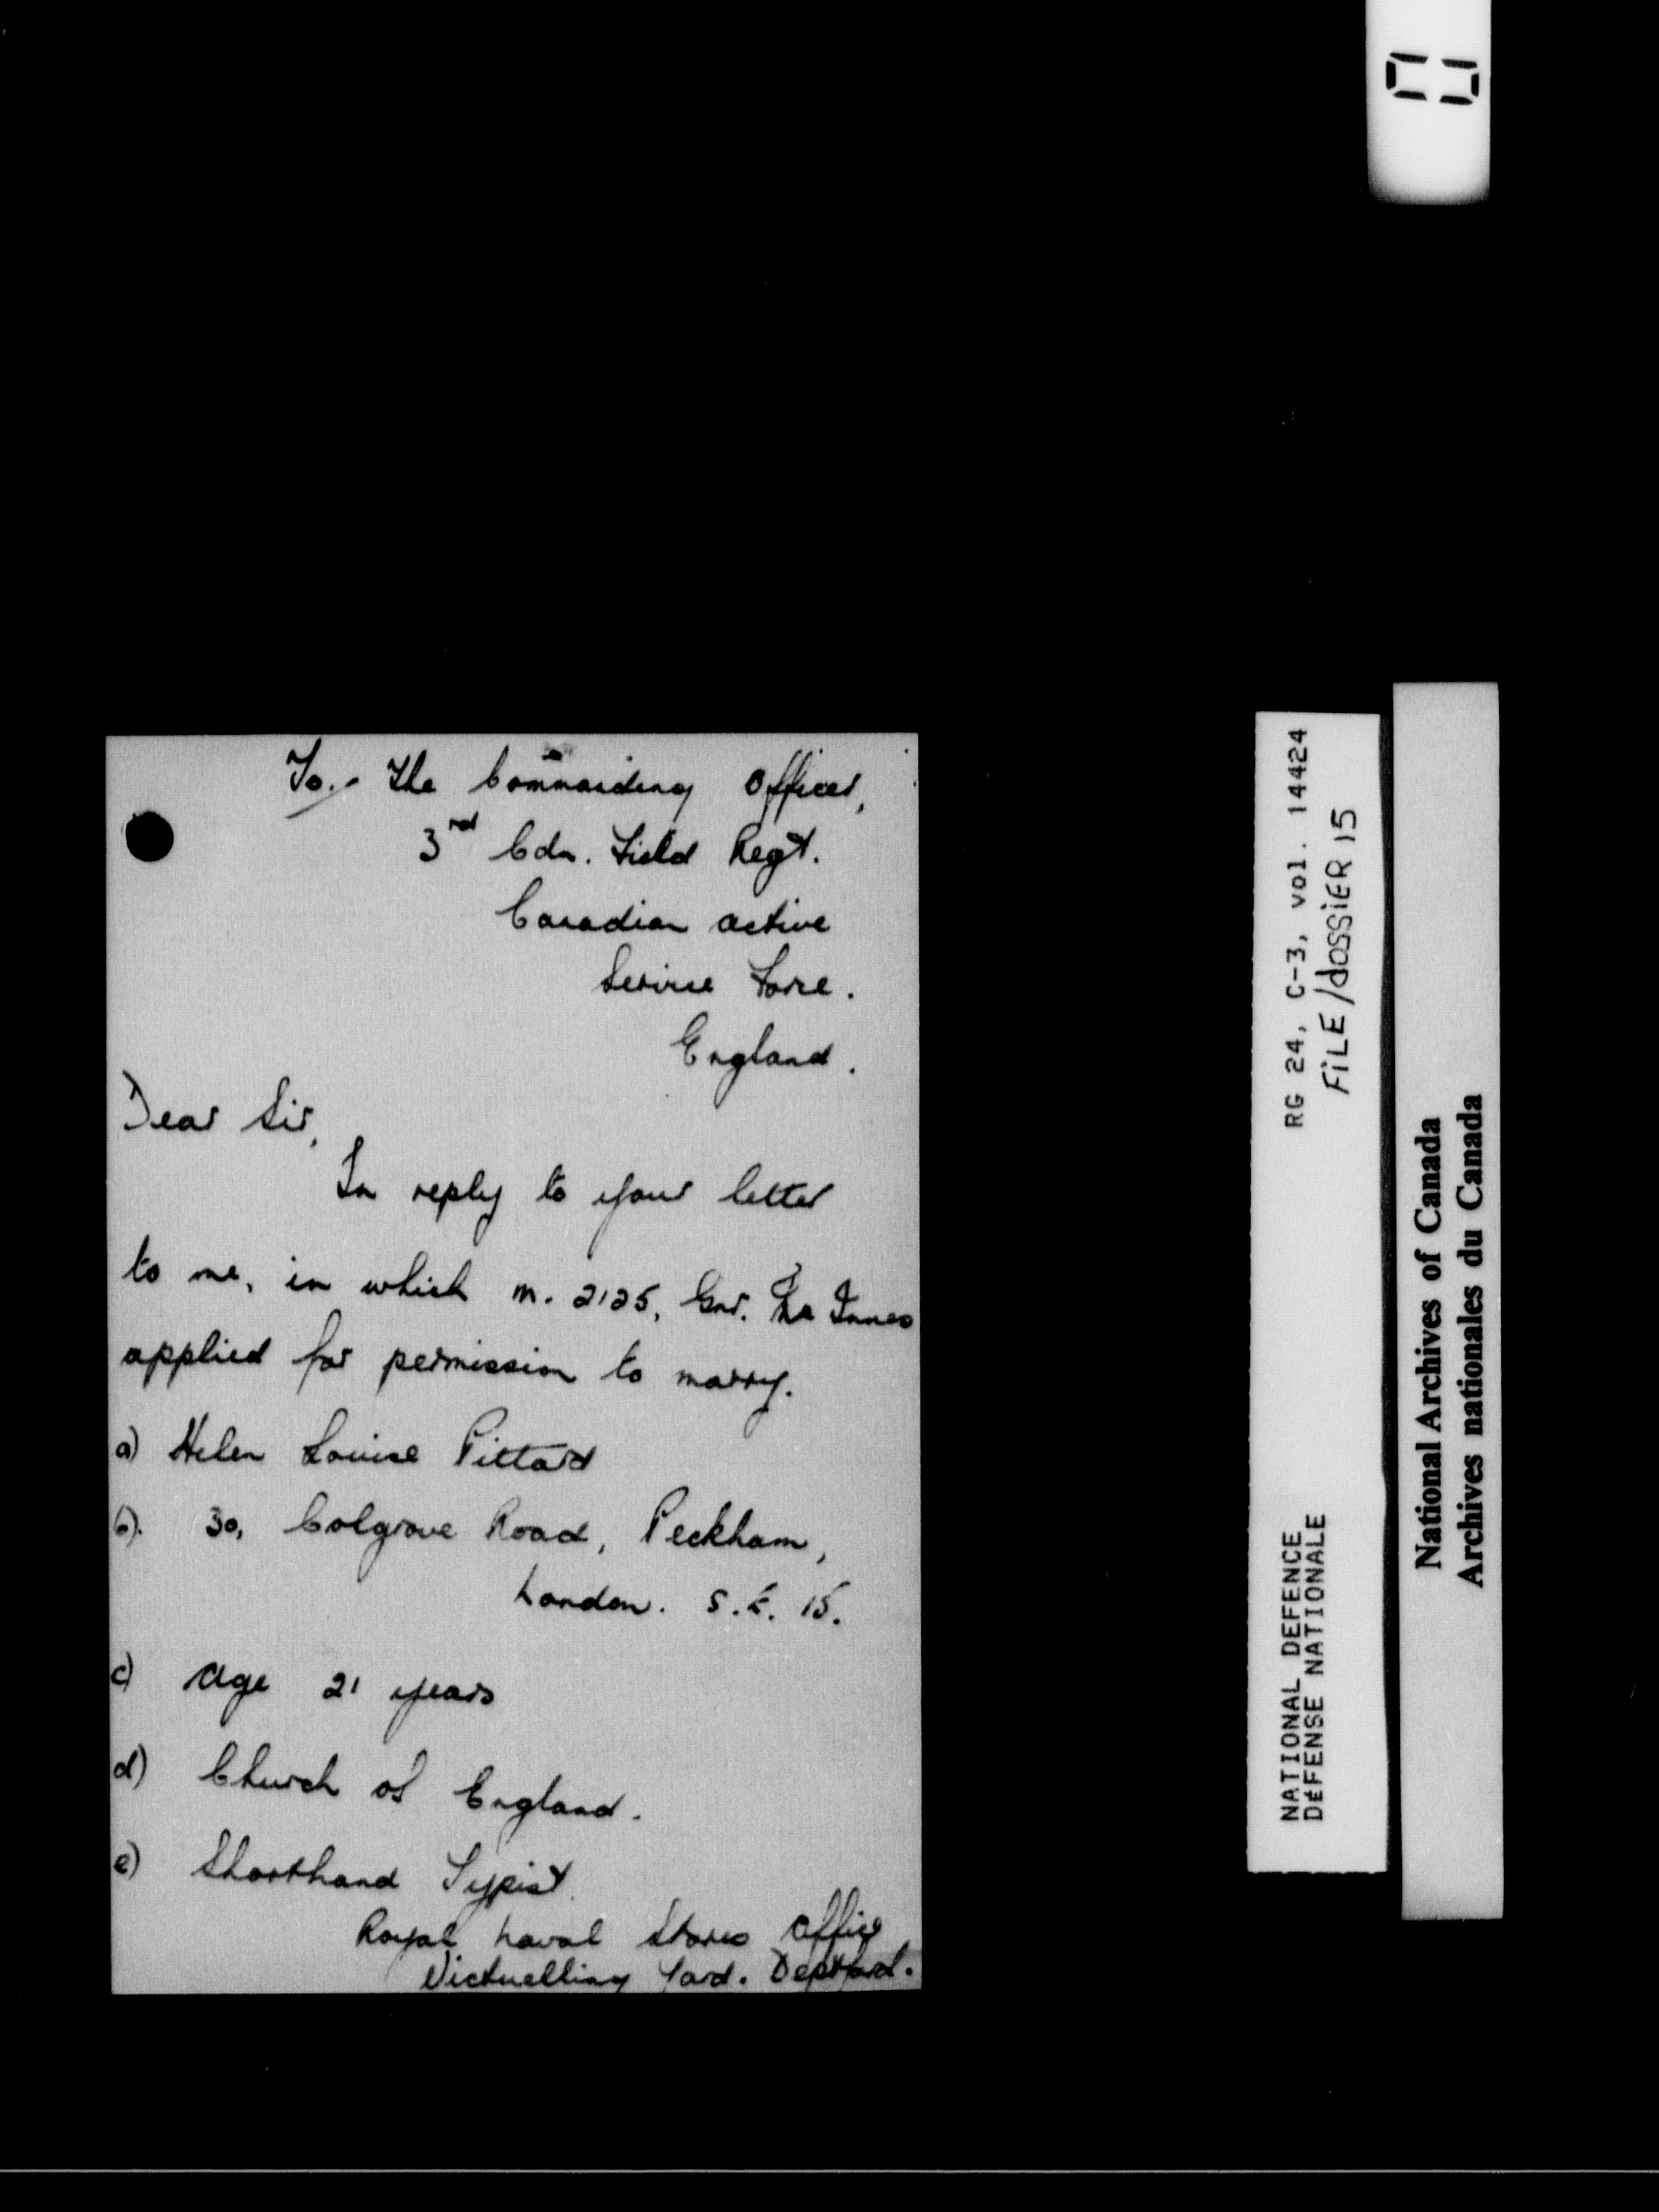 To.- The Commanding Officer,
3rd Cdn. Field Regt.
Canadian Active
Service Force.
England.
Dear Sir,
In reply to your letter
to me, in which M. 2125, Gnr. Innes
applied for permission to marry.
a) Helen Louise Pittard
b). 30, Colgrove Road, Peckham,
London. S.E. 15.
c) Age 21 years
d) Church of England.
e) Shorthand Typist.
Royal Naval Stores Office
Victualling Yard. Deptford.
RG 24, C-3, vol. 14424
FiLE/dossiER 15
NATIONAL DEFENCE
DÉFENSE NATIONALE
National Archives of Canada
Archives nationales du Canada